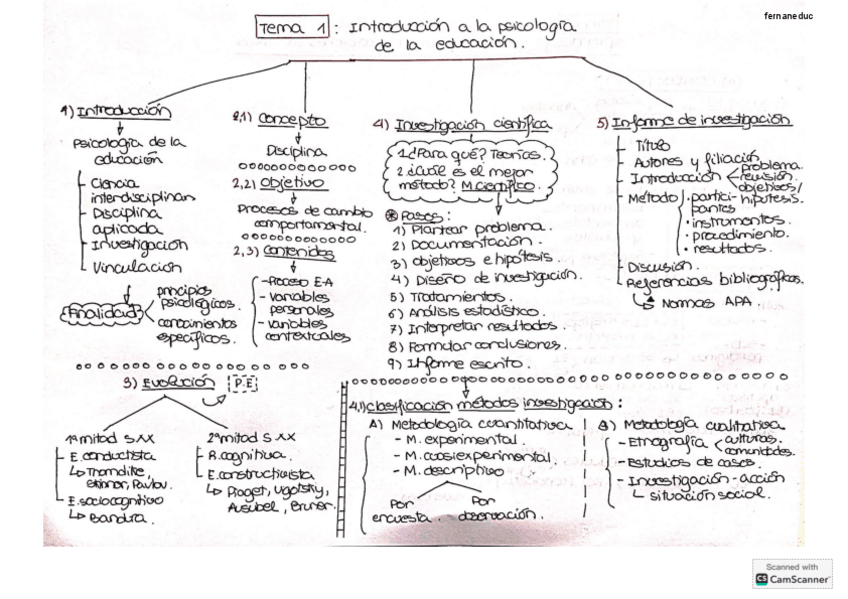 fernaneduc
Tema 1 : Introducción a la psicología
de la educación.
1) Introducción
Psicología de la
educación
- Ciencia
interdisciplinar
- Disciplina
aplicada
- Investigación
- Vinculación
Finalidad
principios
psicológicos.
conocimientos
específicos.
2,1) Concepto
Disciplina
2,2) Objetivo
Procesos de cambio
comportamental.
2,3) Contenidos
- Proceso E-A
- variables
personales
- variables
contextuales
4) Investigación científica
1 ¿Para qué? Teorías.
2 ¿Cuál es el mejor
método? M.Científico.
* Pasos :
1) Plantear problema.
2) Documentación.
3) Objetivos e hipótesis.
4) Diseño de investigación.
5) Tratamientos.
6) Análisis estadístico.
7) Interpretar resultados.
8) Formular conclusiones.
9) Informe escrito.
5) Informe de investigación
- Título
- Autores y filiación
- Introducción
problema.
revisión.
objetivos/
hipótesis.
- Método
· partici-
pantes
· instrumentos.
· procedimiento.
· resultados.
- Discusión.
- Referencias bibliográficas.
Normas APA.
3) Evolución
P.E
1ª mitad S.XX
- E.conductista
Thorndike,
Skinner, Pavlov.
- E.sociocognitivo
Bandra.
2ª mitad S.XX
- R.cognitiva.
- E.constructivista
Piaget, Vigotsky,
Ausubel, Bruner.
4,1) Clasificación métodos investigación :
A) Metodología cuantitativa
- M. experimental.
- M. cuasiexperimental.
- M. descriptivo
Por
encuesta.
Por
observación.
B) Metodología cualitativa
- Etnografía
culturas.
comunidades.
- Estudios de casos.
- Investigación-acción
situación social.
Scanned with
CS CamScanner